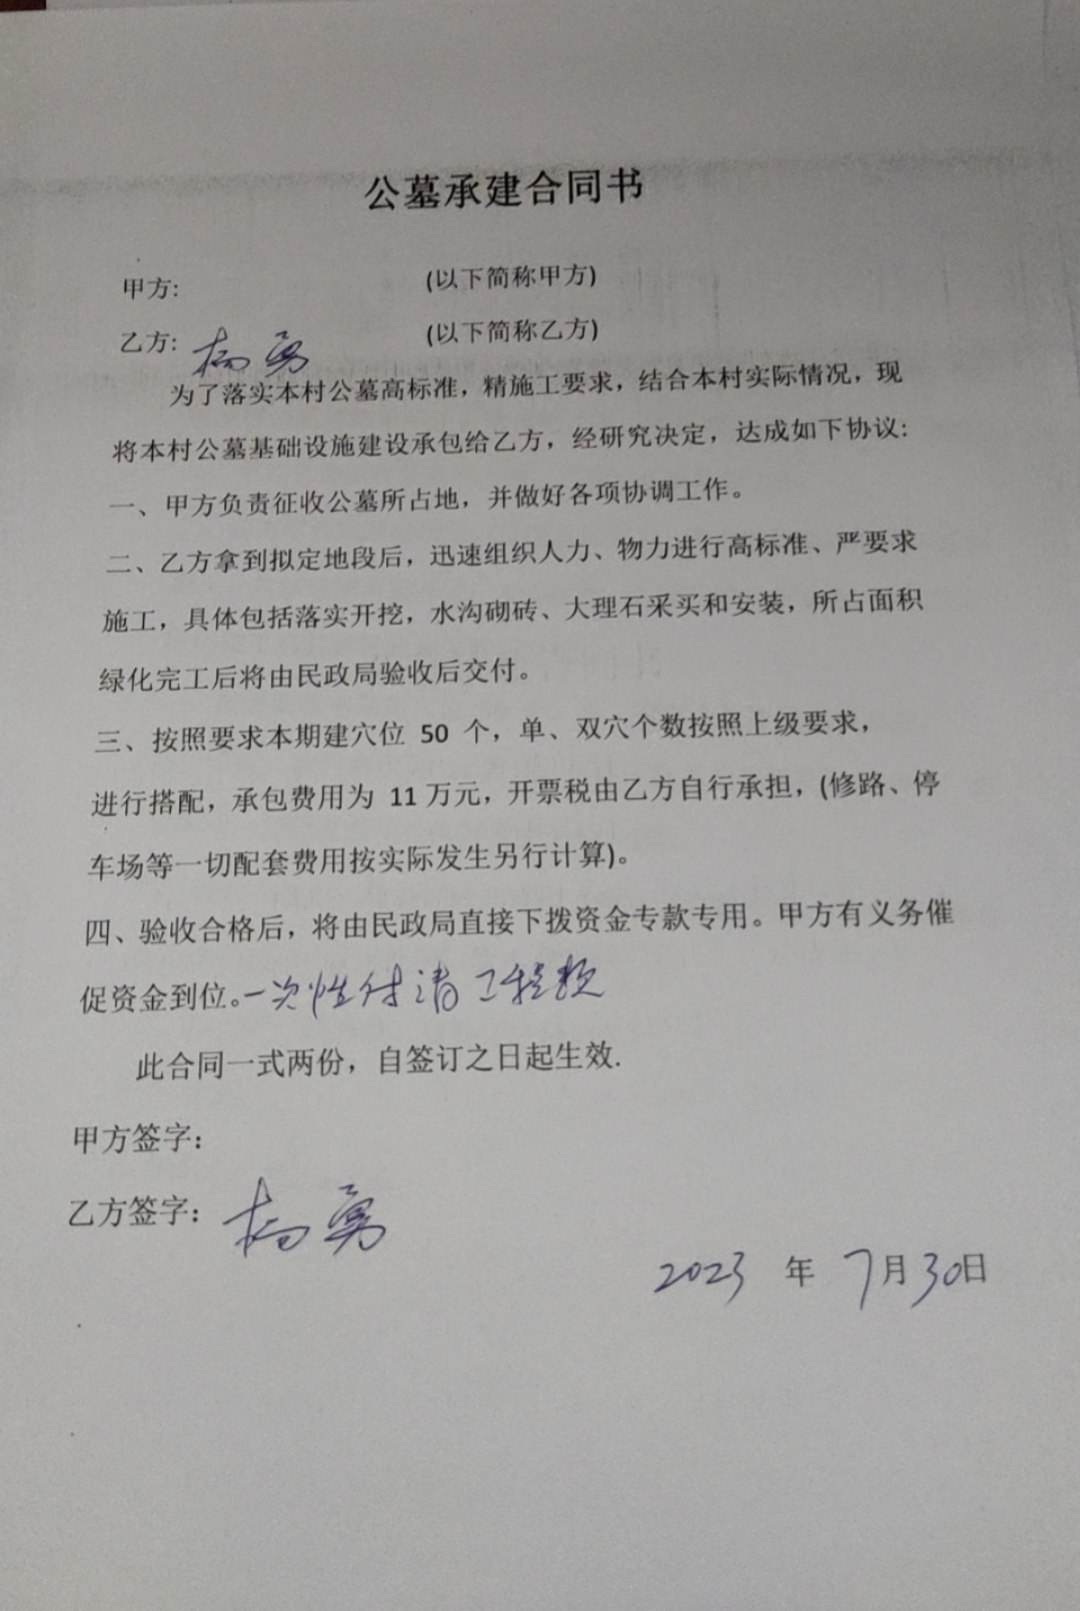 公墓承建合同书
甲方: (以下简称甲方)
乙方: 杨勇 (以下简称乙方)
为了落实本村公墓高标准，精施工要求，结合本村实际情况，现
将本村公墓基础设施建设承包给乙方，经研究决定，达成如下协议:
一、甲方负责征收公墓所占地，并做好各项协调工作。
二、乙方拿到拟定地段后，迅速组织人力、物力进行高标准、严要求
施工，具体包括落实开挖，水沟砌砖、大理石采买和安装，所占面积
绿化完工后将由民政局验收后交付。
三、按照要求本期建穴位 50 个，单、双穴个数按照上级要求，
进行搭配，承包费用为 11 万元，开票税由乙方自行承担，(修路、停
车场等一切配套费用按实际发生另行计算)。
四、验收合格后，将由民政局直接下拨资金专款专用。甲方有义务催
促资金到位。一次性付清工程款
此合同一式两份，自签订之日起生效.
甲方签字:
乙方签字: 杨勇
2023 年 7月30日